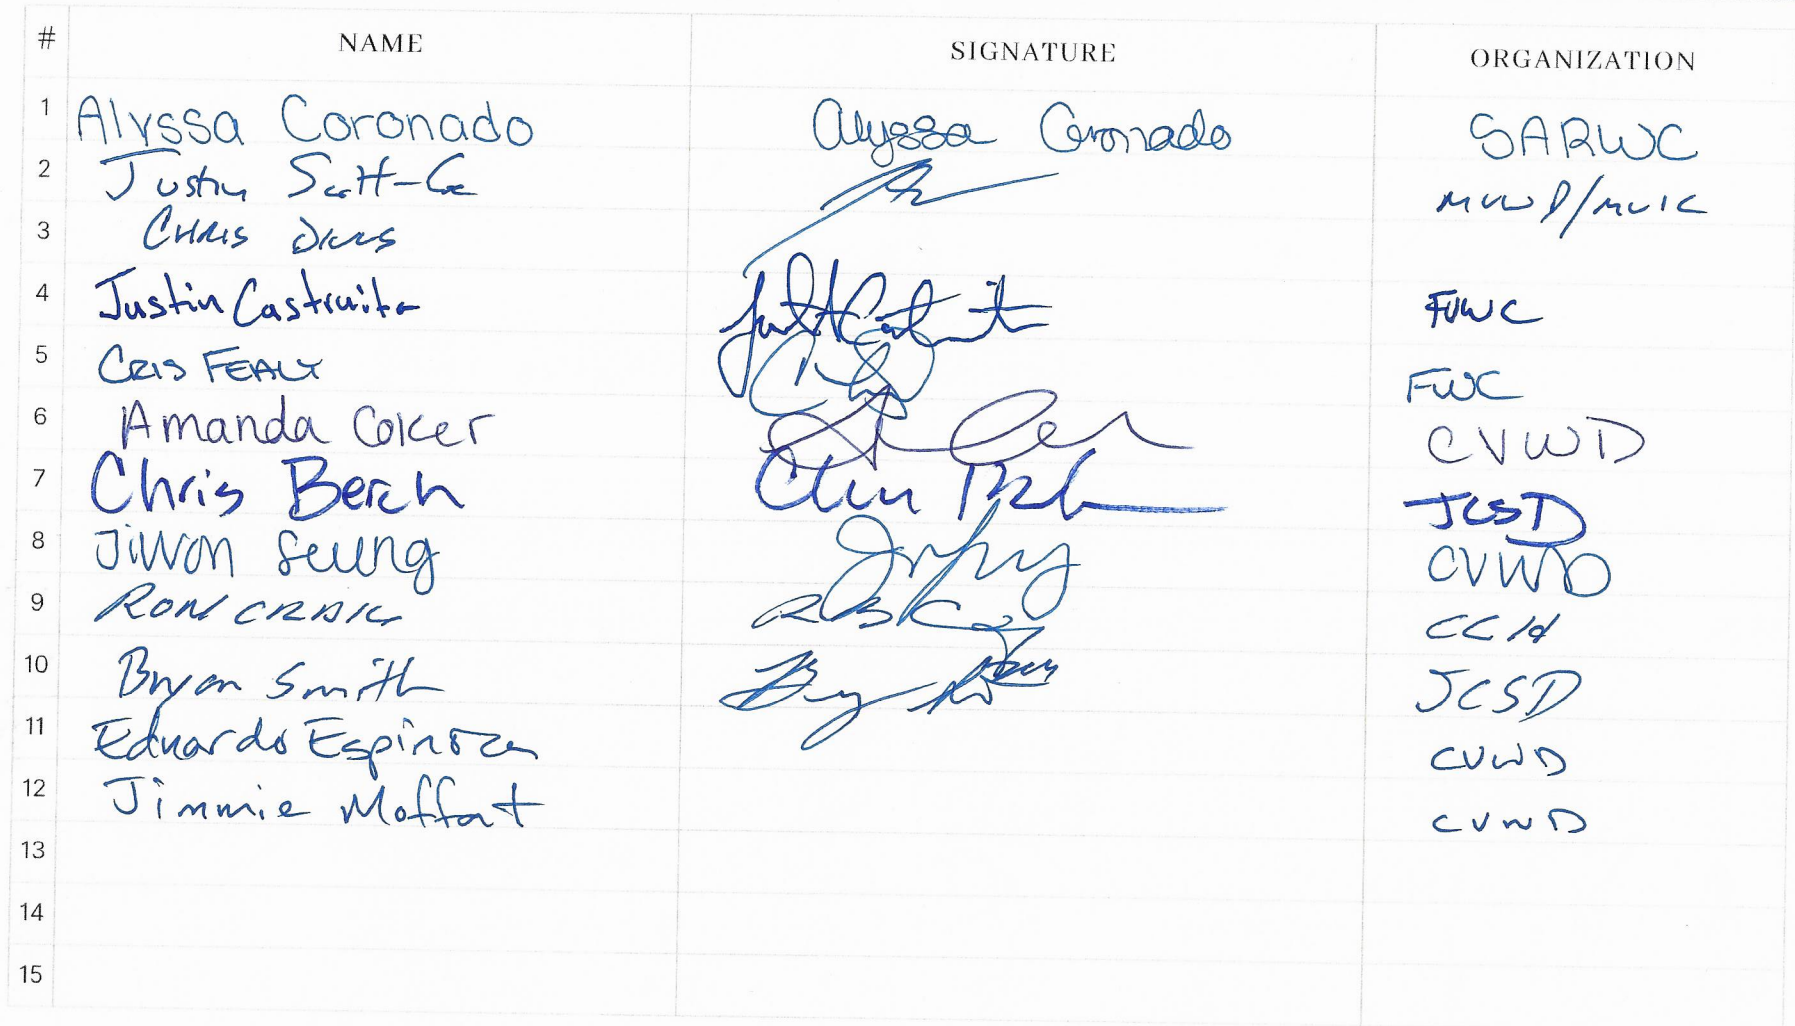 # NAME SIGNATURE ORGANIZATION
1 Alyssa Coronado Alyssa Coronado SARWC
2 Justin Scott-Coe MVWD/MVIC
3 CHRIS DIGGS
4 Justin Castruita FUWC
5 CRIS FEALY FWC
6 Amanda Coker CVWD
7 Chris Berch JCSD
8 Jiwon Seung CVWD
9 RON CRAIG CCH
10 Bryan Smith JCSD
11 Eduardo Espinoza CVWD
12 Jimmie Moffatt CVWD
13
14
15